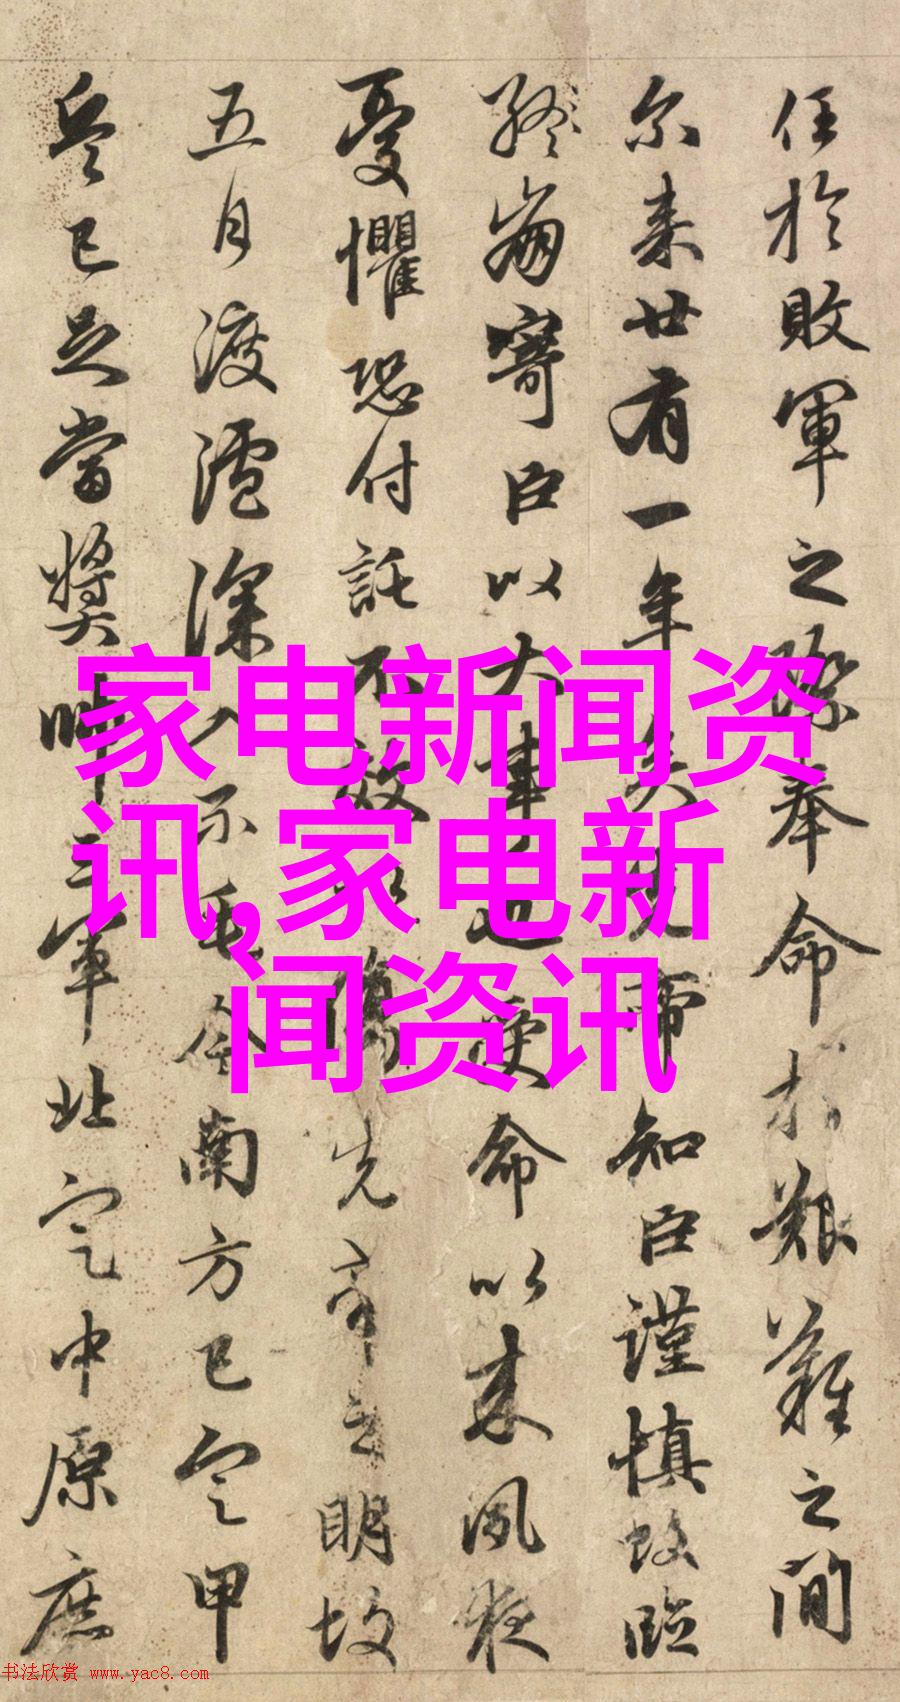 任於敗軍之際奉命於艱難之間
尔来廿有一年矣先帝知臣謹慎故臨
終崩寄臣以大事也受命以来夙夜
憂懼恐付託不效以傷先帝之明故
五月渡瀘深入不毛今南方已定甲
兵已足當奬帥三軍北定中原庶
家电新闻资
讯,家电新
闻资讯
书法欣赏 www.yac8.com